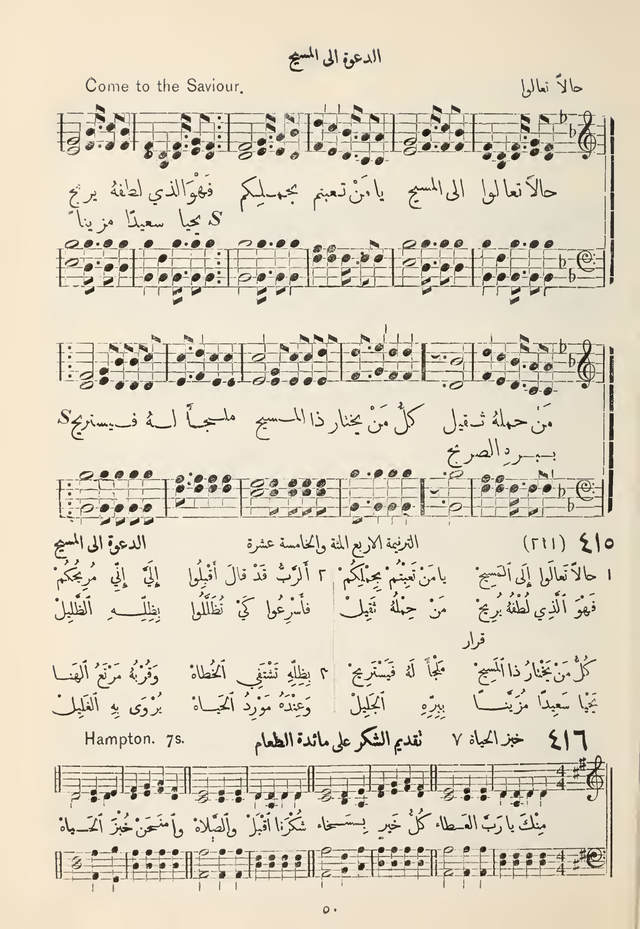 الدعوة الى المسيح
Come to the Saviour. حالاً تعالوا
حالاً تعالوا الى المسيح يا من تعبتم بحملكم فهو الذي لطفه يريح
يحيا سعيدًا مزيناً
من حمله ثقيل كلُّ من يختار ذا المسيح ملجأً له فيستريح
ببره الصريح
٤١٥ (٢٤١) الترنيمة الاربع المئة والخامسة عشرة الدعوة الى المسيح
١ حالاً تَعَالَوا إِلَى المَسِيحْ يا مَنْ تَعِبْتُمْ بِحِمْلِكُمْ ٢ أَلرَّبُّ قَدْ قالَ أَقْبِلُوا إِلَيَّ إِنِّي مُرِيحُكُمْ
فَهْوَ ٱلَّذِي لُطْفُهُ يُرِيحْ مَنْ حِمْلُهُ ثَقِيلْ فَأَسْرِعُوا كَيْ تُظَلَّلُوا بِظِلِّهِ ٱلظَّلِيلْ
قرار
كُلُّ مَنْ يَخْتَارُ ذا ٱلمَسِيحْ مَلْجَأً لَهُ فَيَسْتَرِيحْ ٢ بِظِلِّهِ تَشْتَفِي ٱلخُطَاهْ وَقُرْبُهُ مَرْتَعُ ٱلهَنا
يَحْيا سَعِيدًا مُزَيَّناً بِبِرِّهِ ٱلجَلِيلْ وَعِنْدَهُ مَوْرِدُ ٱلحَيَاهْ يُرْوَى بِهِ ٱلغَلِيلْ
٤١٦ خبز الحياة ٧ تقديم الشكر على مائدة الطعام Hampton. 7s.
مِنْكَ يا رَبَّ العَطَاء كُلُّ خَيرٍ بِسَخَاء شُكْرَنا ٱقْبَلْ وٱلصَّلاة وٱمنَحَنْ خُبْزَ ٱلحَيَاة
٥٠